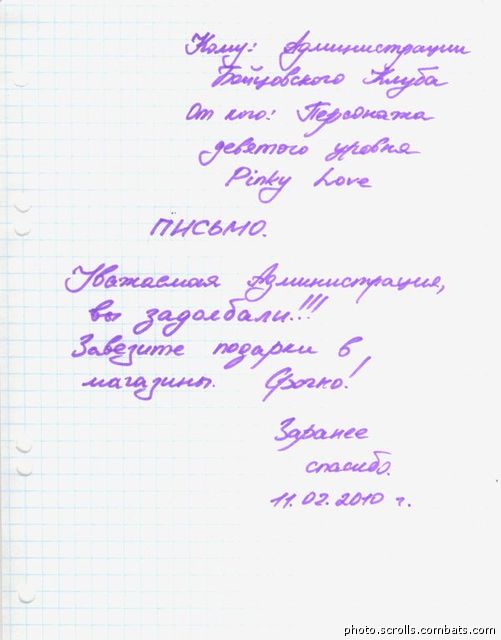 Кому: Администрации
Бойцовского Клуба
От кого: Персонажа
девятого уровня
Pinky Love
ПИСЬМО.
Уважаемая Администрация,
вы задолбали!!!
Завезите подарки в
магазины. Срочно!
Заранее
спасибо.
11.02.2010 г.
photo.scrolls.combats.com